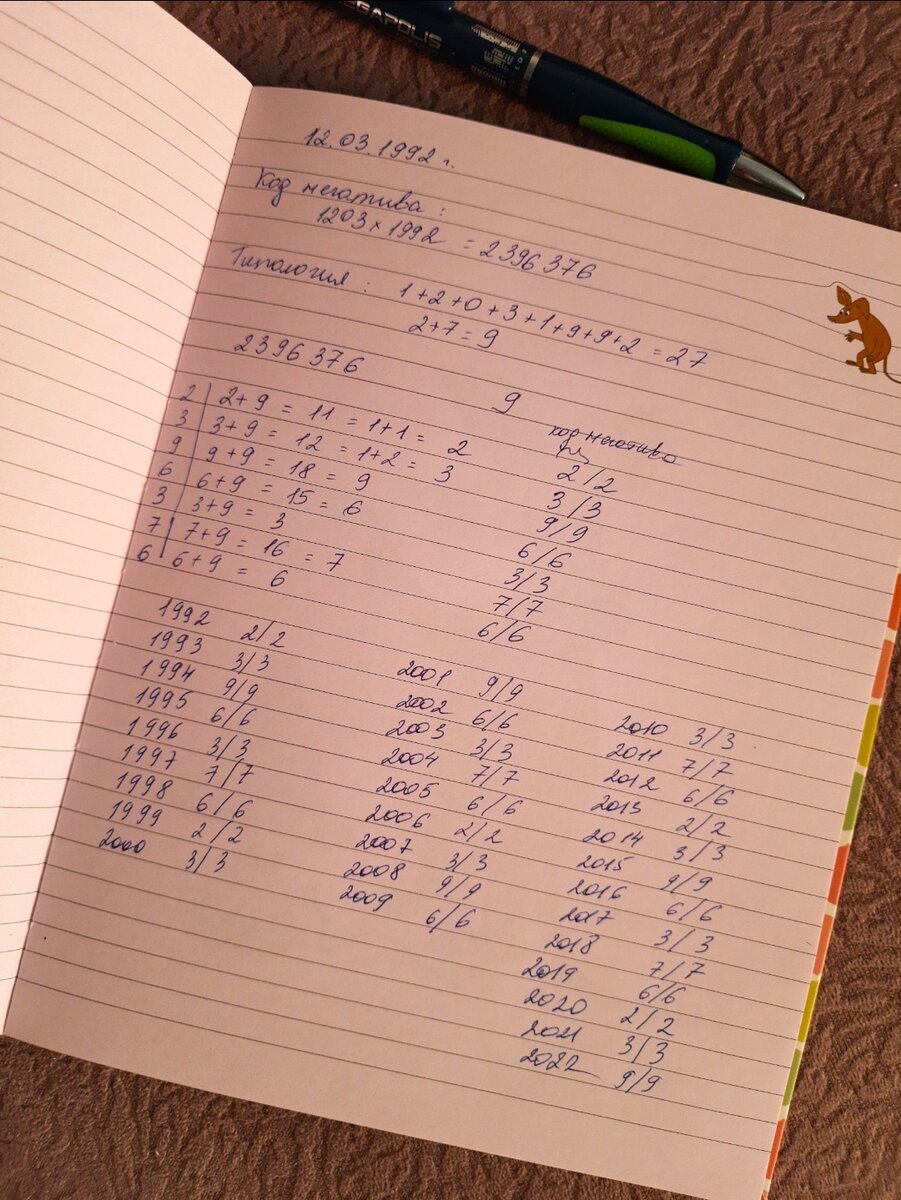 EGAPOLIS
12.03.1992 г.
Код негатива :
1203 × 1992 = 2396376
Типология : 1+2+0+3+1+9+9+2 = 27
2+7 = 9
2396376
9
2 | 2+9 = 11 = 1+1 = 2
3 | 3+9 = 12 = 1+2 = 3
9 | 9+9 = 18 = 9
6 | 6+9 = 15 = 6
3 | 3+9 = 3
7 | 7+9 = 16 = 7
6 | 6+9 = 6
код негатива
2/2
3/3
9/9
6/6
3/3
7/7
6/6
1992 2/2
1993 3/3
1994 9/9
1995 6/6
1996 3/3
1997 7/7
1998 6/6
1999 2/2
2000 3/3
2001 9/9
2002 6/6
2003 3/3
2004 7/7
2005 6/6
2006 2/2
2007 3/3
2008 9/9
2009 6/6
2010 3/3
2011 7/7
2012 6/6
2013 2/2
2014 3/3
2015 9/9
2016 6/6
2017 3/3
2018 7/7
2019 6/6
2020 2/2
2021 3/3
2022 9/9